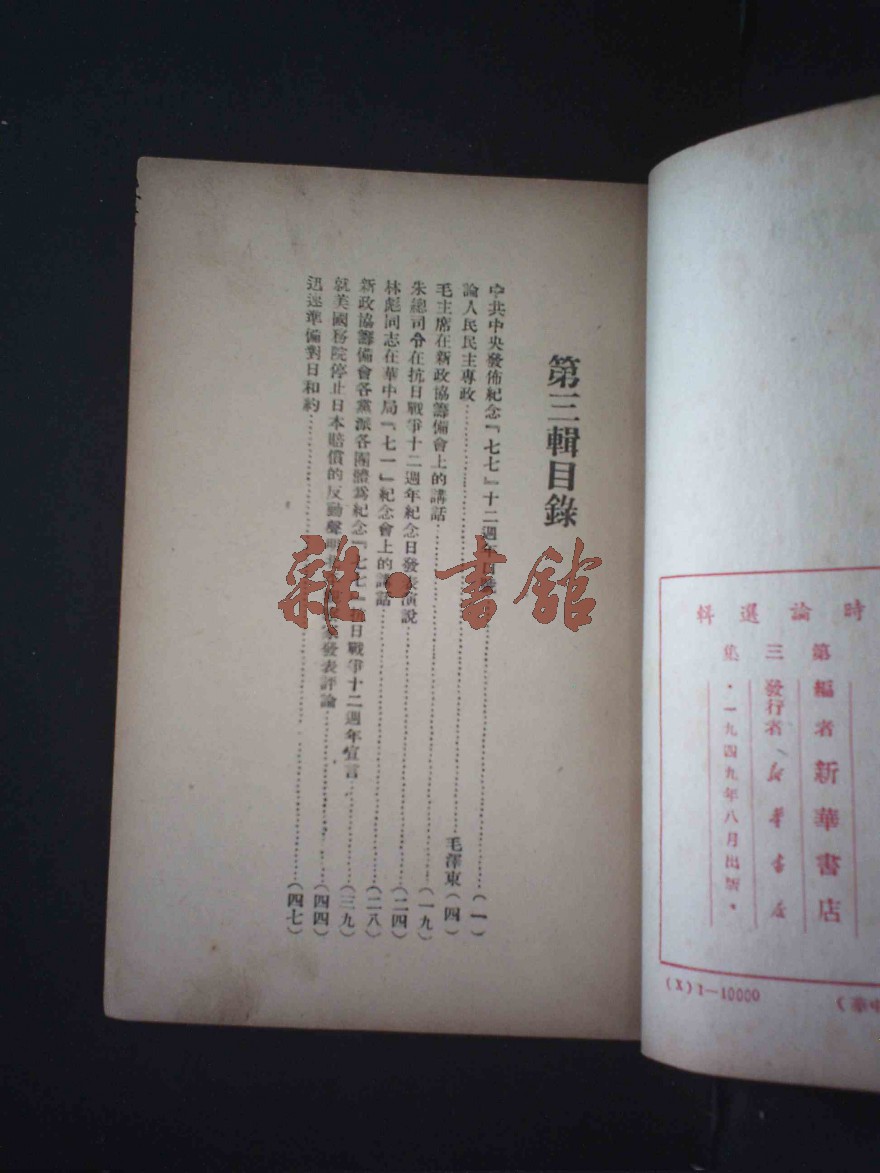 時論選輯
第三集
編者 新華書店
發行者 新華書店
·一九四九年八月出版·
(X)I—10000
(華中
第三輯目錄
中共中央發佈紀念『七七』十二週年口號……(一)
論人民民主專政……毛澤東(四)
毛主席在新政協籌備會上的講話……(一九)
朱總司令在抗日戰爭十二週年紀念日發表演說……(二四)
林彪同志在華中局『七一』紀念會上的講話……(二八)
新政協籌備會各黨派各團體爲紀念『七七』抗日戰爭十二週年宣言……(三九)
就美國務院停止日本賠償的反動聲明 發表評論……(四四)
迅速準備對日和約……(四七)
雜·書館